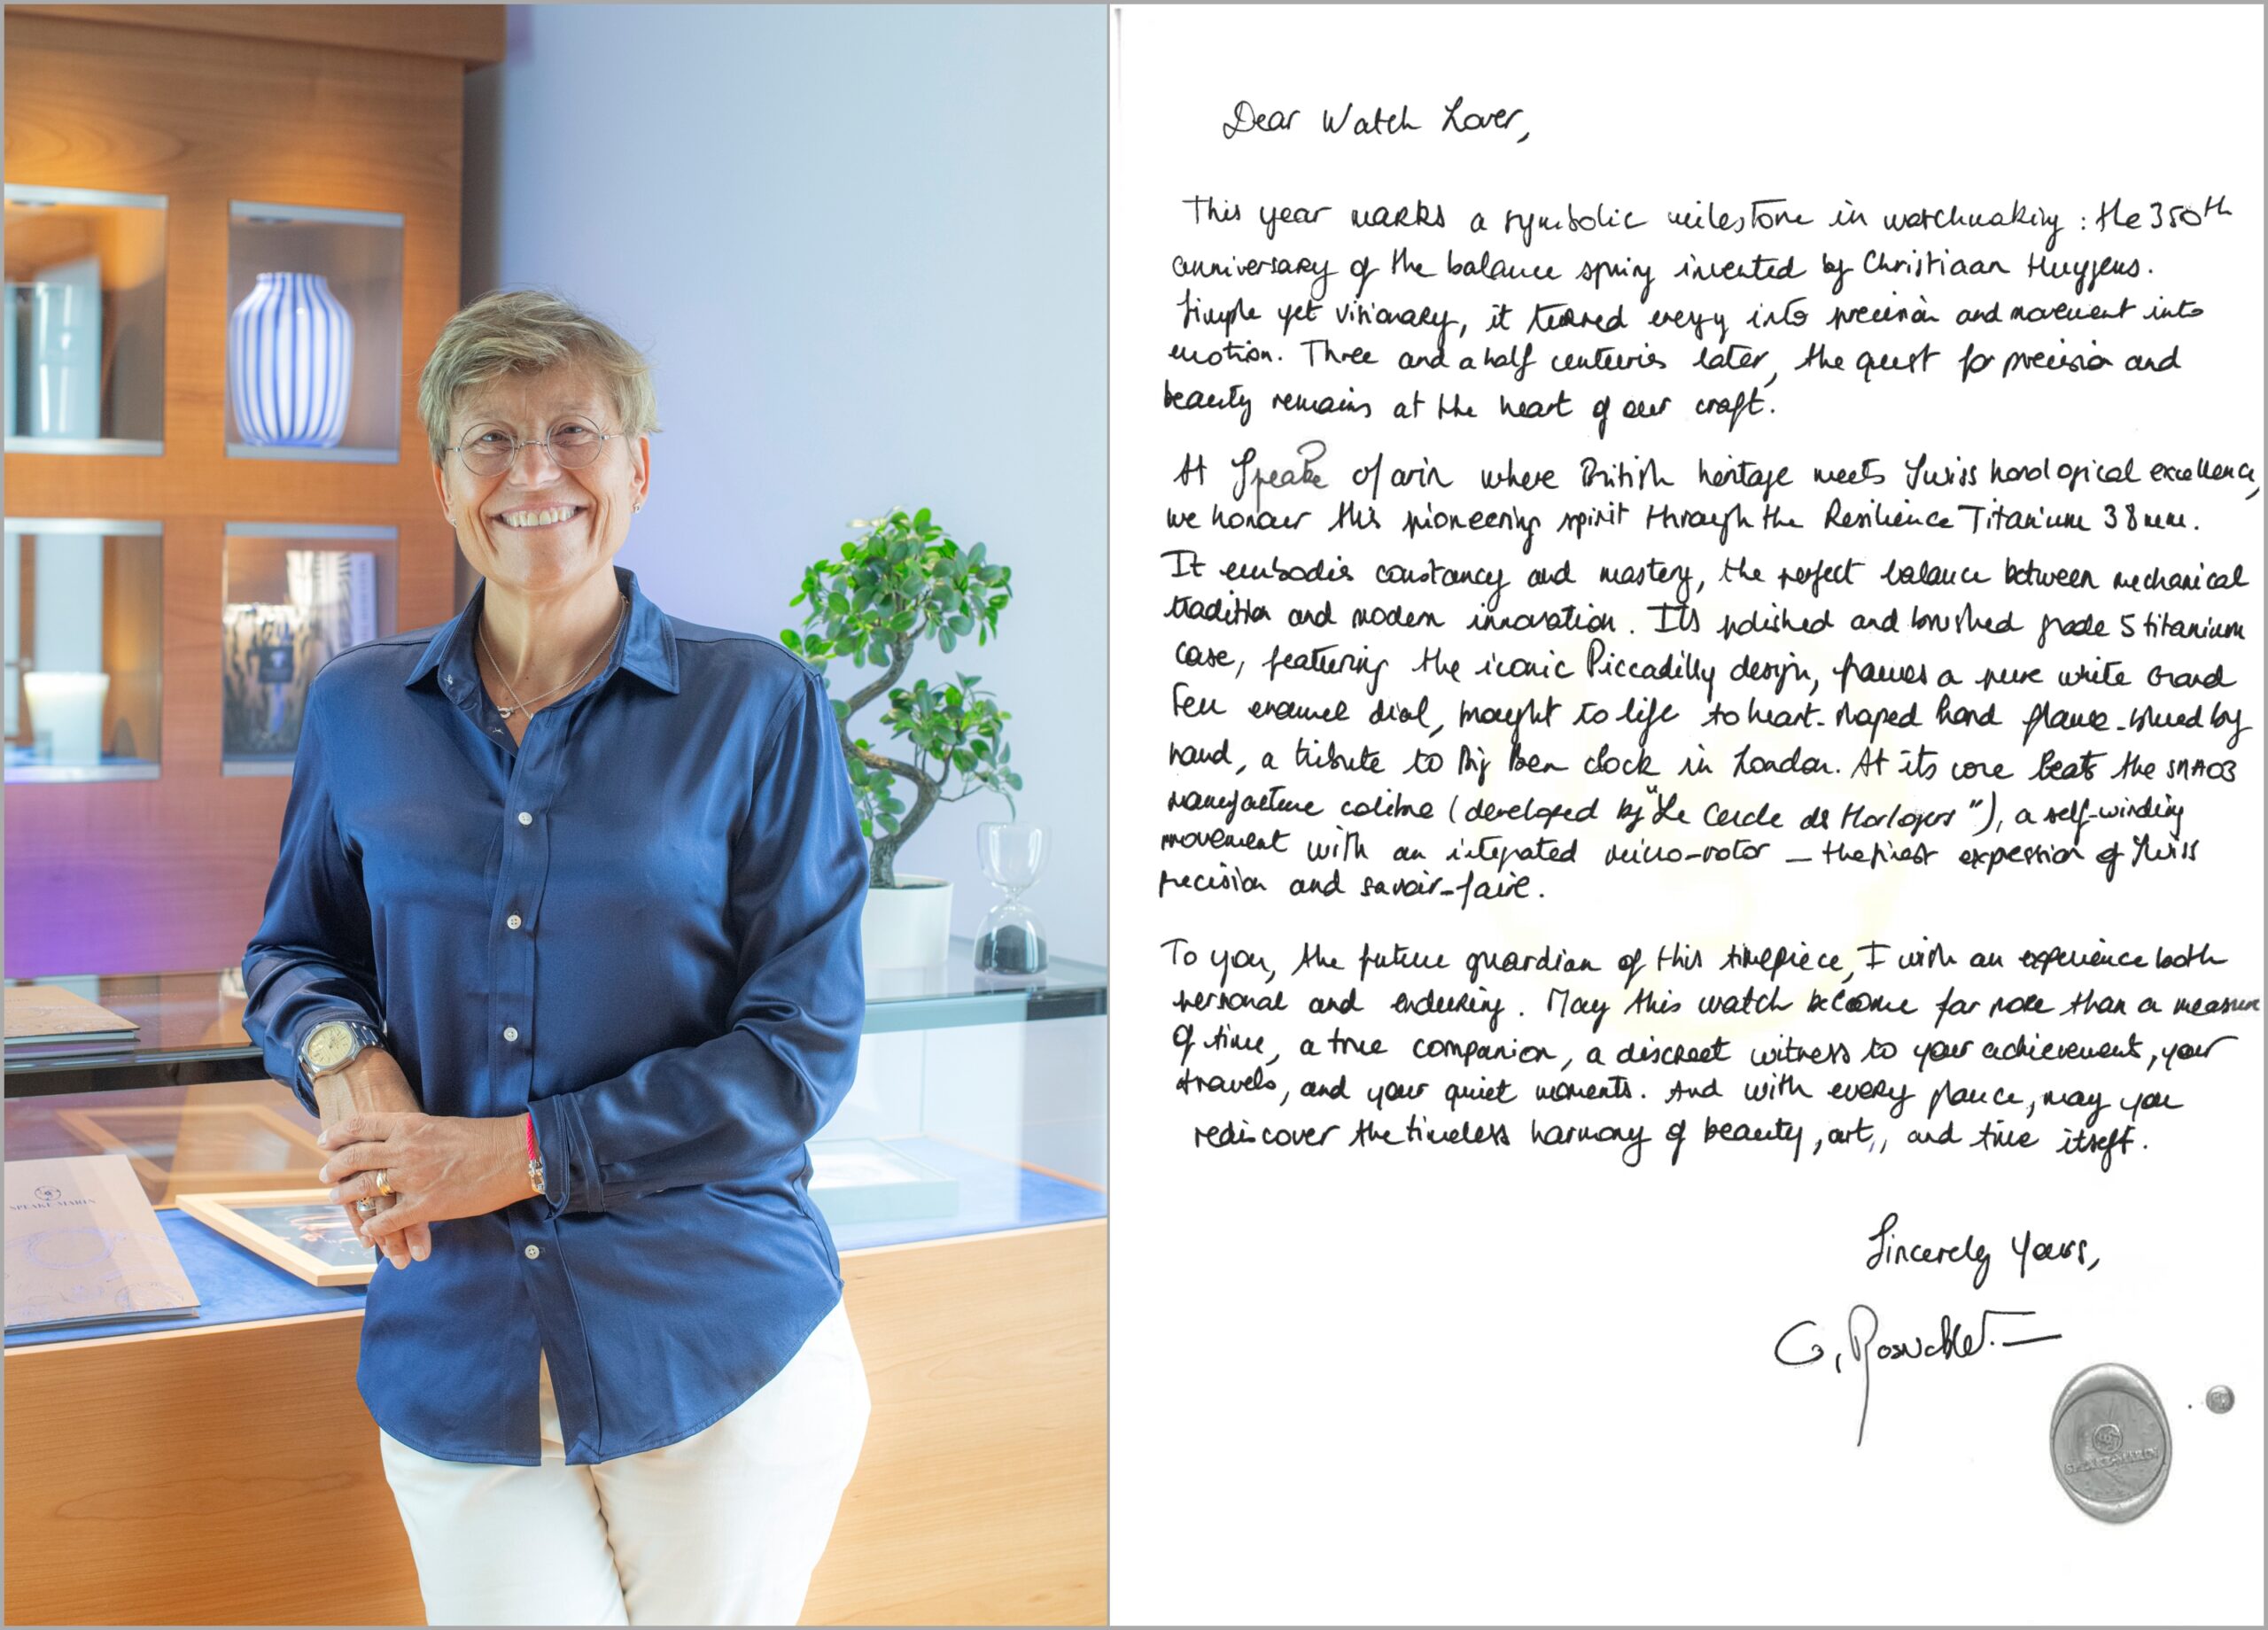 SPEAKE-MARIN
Dear Watch Lover,
This year marks a symbolic milestone in watchmaking : the 350th
anniversary of the balance spring invented by Christiaan Huygens.
Simple yet visionary, it turned energy into precision and movement into
emotion. Three and a half centuries later, the quest for precision and
beauty remains at the heart of our craft.
At Speake Marin where British heritage meets Swiss horological excellence,
we honour this pioneering spirit through the Resilience Titanium 38mm.
It embodies constancy and mastery, the perfect balance between mechanical
tradition and modern innovation. Its polished and brushed grade 5 titanium
case, featuring the iconic Piccadilly design, frames a pure white Grand
Feu enamel dial, brought to life to heart-shaped hand flame-blued by
hand, a tribute to Big Ben clock in London. At its core beats the SMA03
manufacture calibre (developed by "Le Cercle des Horlogers"), a self-winding
movement with an integrated micro-rotor – the finest expression of Swiss
precision and savoir-faire.
To you, the future guardian of this timepiece, I wish an experience both
personal and enduring. May this watch become far more than a measure
of time, a true companion, a discreet witness to your achievement, your
travels, and your quiet moments. And with every glance, may you
rediscover the timeless harmony of beauty, art,, and time itself.
Sincerely Yours,
SPEAKE-MARIN